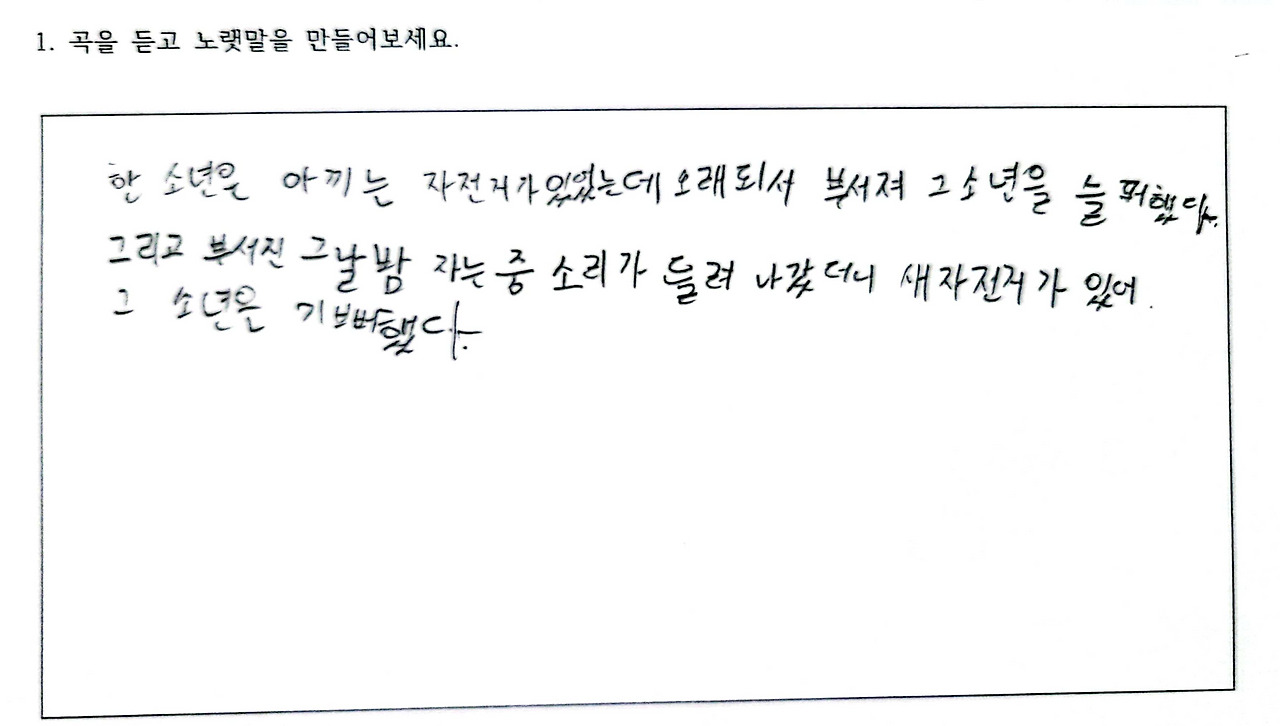 1. 곡을 듣고 노랫말을 만들어보세요.
한 소년은 아끼는 자전거가있었는데 오래되서 부서져 그소년을 늘퍼했다.
그리고 부서진 그날밤 자는중 소리가 들려 나갔더니 새자전거가 있어.
그 소년은 기쁘뻐했다.